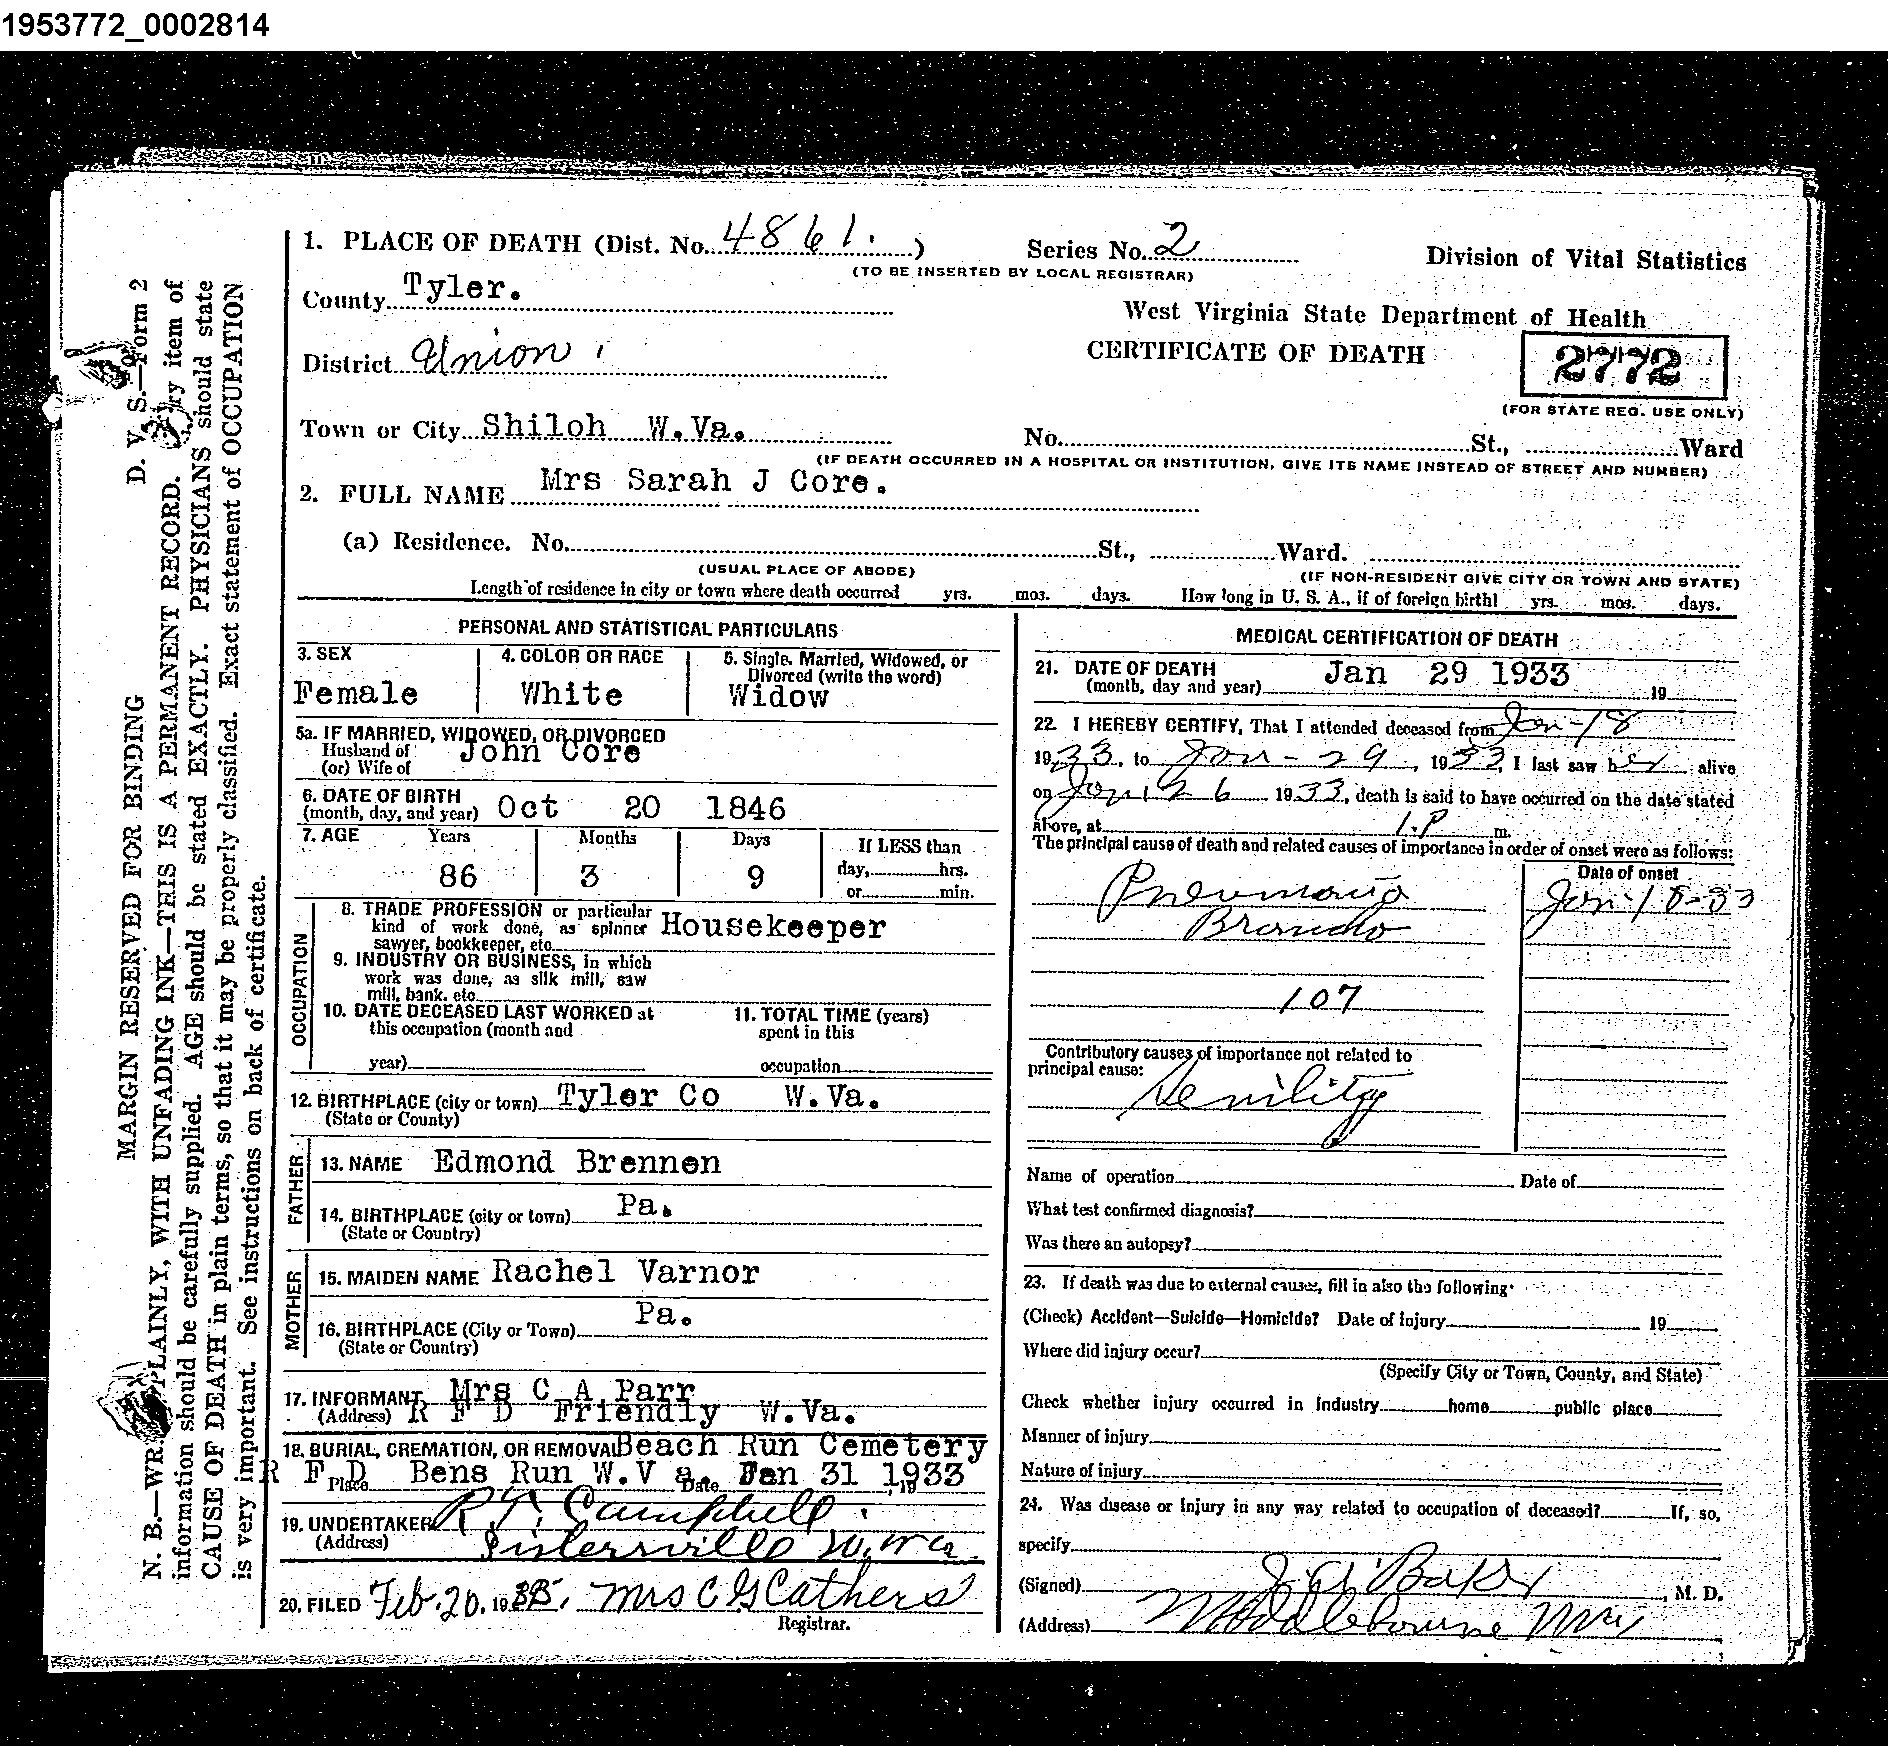 1953772_0002814
1. PLACE OF DEATH (Dist. No. 4861. ) Series No. 2 Division of Vital Statistics
(TO BE INSERTED BY LOCAL REGISTRAR)
County Tyler.
West Virginia State Department of Health
District Union
CERTIFICATE OF DEATH 2772
(FOR STATE REG. USE ONLY)
Town or City Shiloh W.Va. No. St., Ward
(IF DEATH OCCURRED IN A HOSPITAL OR INSTITUTION, GIVE ITS NAME INSTEAD OF STREET AND NUMBER)
2. FULL NAME Mrs Sarah J Core.
(a) Residence. No. St., Ward.
(USUAL PLACE OF ABODE) (IF NON-RESIDENT GIVE CITY OR TOWN AND STATE)
Length of residence in city or town where death occurred yrs. mos. days. How long in U. S. A., if of foreign birth! yrs. mos. days.
PERSONAL AND STATISTICAL PARTICULARS
3. SEX 4. COLOR OR RACE 5. Single, Married, Widowed, or
Divorced (write the word)
Female White Widow
5a. IF MARRIED, WIDOWED, OR DIVORCED
Husband of John Core
(or) Wife of
6. DATE OF BIRTH
(month, day, and year) Oct 20 1846
7. AGE Years Months Days If LESS than
86 3 9 day, hrs.
or min.
OCCUPATION
8. TRADE PROFESSION or particular
kind of work done, as spinner Housekeeper
sawyer, bookkeeper, etc.
9. INDUSTRY OR BUSINESS, in which
work was done, as silk mill, saw
mill, bank, etc.
10. DATE DECEASED LAST WORKED at 11. TOTAL TIME (years)
this occupation (month and spent in this
year) occupation
12. BIRTHPLACE (city or town) Tyler Co W.Va.
(State or County)
FATHER
13. NAME Edmond Brennen
14. BIRTHPLACE (city or town) Pa.
(State or Country)
MOTHER
15. MAIDEN NAME Rachel Varnor
16. BIRTHPLACE (City or Town) Pa.
(State or Country)
17. INFORMANT Mrs C A Parr
(Address) R F D Friendly W.Va.
18. BURIAL, CREMATION, OR REMOVAL Beach Run Cemetery
R F D Bens Run W.V a. Jan 31 1933
Place Date 19
19. UNDERTAKER R T. Campbell
(Address) Sistersville W. Va.
20. FILED Feb. 20. 1933. Mrs C G Cathers
Registrar.
MEDICAL CERTIFICATION OF DEATH
21. DATE OF DEATH
(month, day and year) Jan 29 1933 19
22. I HEREBY CERTIFY, That I attended deceased from Jan-18
1933, to Jan-29, 1933, I last saw her alive
on Jan, 26 1933, death is said to have occurred on the date stated
above, at 1.P m.
The principal cause of death and related causes of importance in order of onset were as follows:
Date of onset
Pneumonia Jan-18-33
Broncho
107
Contributory causes of importance not related to
principal cause:
Senility
Name of operation Date of
What test confirmed diagnosis?
Was there an autopsy?
23. If death was due to external causes, fill in also the following:
(Check) Accident—Suicide—Homicide? Date of injury 19
Where did injury occur?
(Specify City or Town, County, and State)
Check whether injury occurred in industry home public place
Manner of injury
Nature of injury
24. Was disease or injury in any way related to occupation of deceased? If, so,
specify
(Signed) Baker, M. D.
(Address) Middlebourne W Va
MARGIN RESERVED FOR BINDING D. V. S.—Form 2
N. B.—WRITE PLAINLY, WITH UNFADING INK—THIS IS A PERMANENT RECORD. Every item of
information should be carefully supplied. AGE should be stated EXACTLY. PHYSICIANS should state
CAUSE OF DEATH in plain terms, so that it may be properly classified. Exact statement of OCCUPATION
is very important. See instructions on back of certificate.